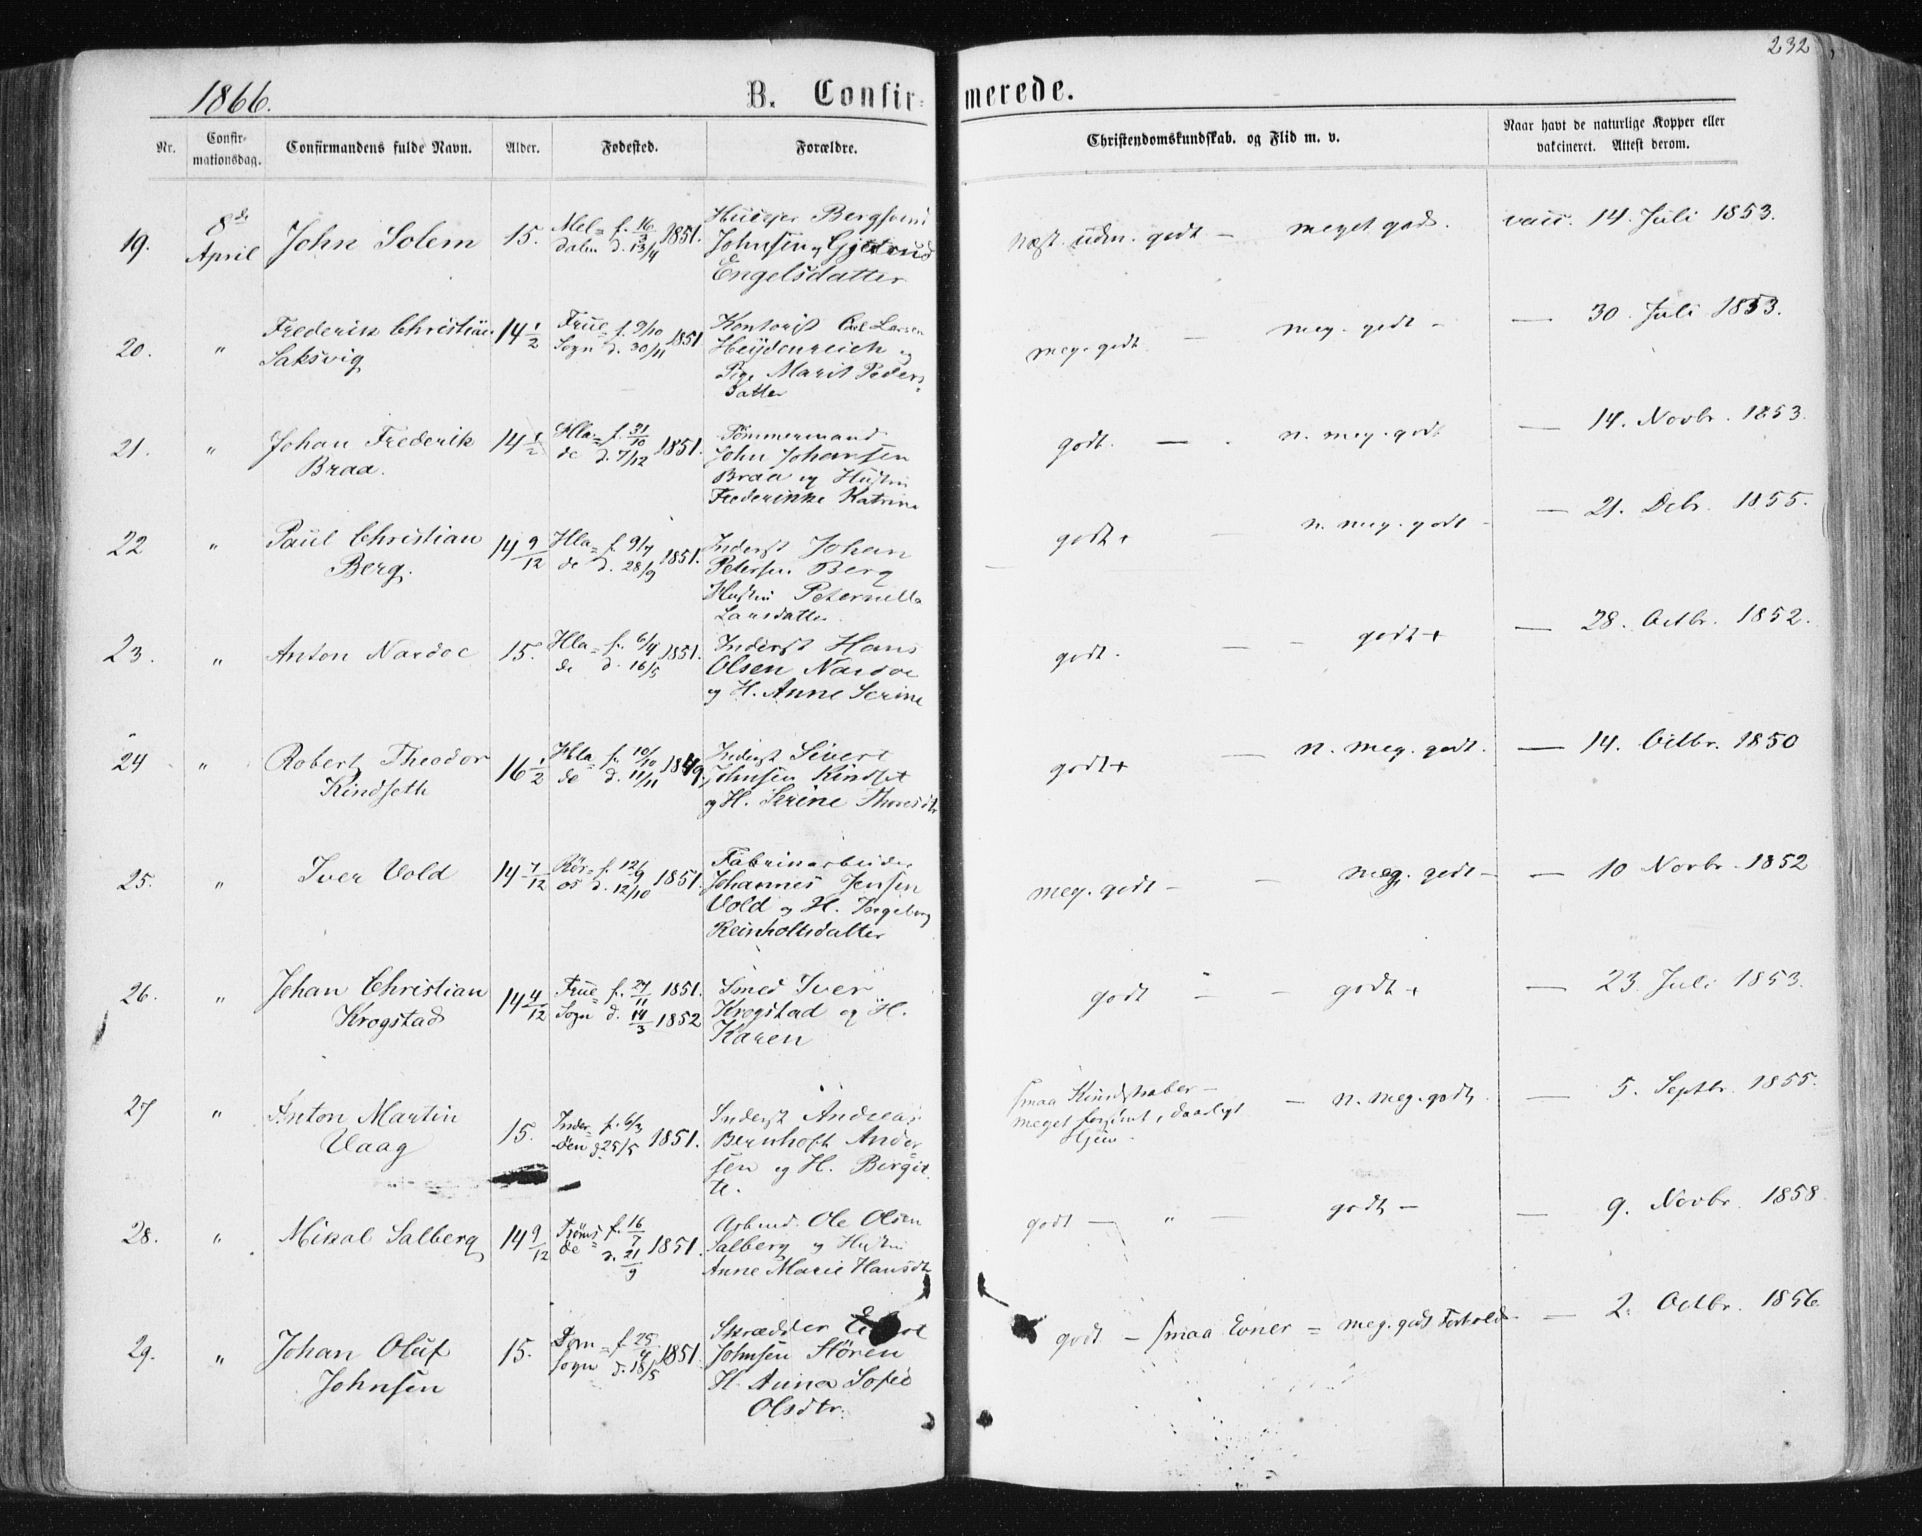 232
1866.
B. Confirmerede.
Nr.
Confirmationsdag.
Confirmandens fulde Navn.
Alder.
Fødested.
Forældre.
Christendomskundskab. og Flid m. v.
Naar havt de naturlige Kopper eller
vakcineret. Attest derom.
19. 8de April John Solem 15. Mel= f. 16/3 1851.
dalen d. 13/4
Bergsvend
Johnsen og Gjertrud
Engelsdatter
næst. udm. godt — meget godt. vacc. 14. Juli 1853.
20. " Frederik Christian
Saksvig
14 1/2 Frue= f. 9/10 1851
Sogn d. 30/11
Kontorist Carl Larsen
Heydenreich og
Pige Marit Peders
datter
meg. godt — meg. godt — — 30. Juli 1853.
21. " Johan Frederik
Braa.
14 1/2 Hla= f. 31/10 1851.
de d. 7/12
Tømmermand
John Johansen
Braa og Hustru
Frederikke Katrine
godt. — n. meg. godt — 14. Novbr. 1853.
22 " Paul Christian
Berg.
14 9/12 Hla= f. 9/7 1851.
de d. 28/9
Inderst Johan
Petersen Berg
Hustru Peternella
Larsdatter
godt+ — n. meg. godt — — 21. Debr. 1855.
23. " Anton Nardoe 15. Hla= f. 6/4 1851.
de d. 16/5
Inderst Hans
Olsen Nardoe
og H. Anne Serine
godt. — — godt+ — 28. Octbr. 1852.
24 " Robert Theodor
Kindseth
16 1/2 Hla= f. 10/10 1849.
de d. 11/11
Inderst Sivert
Johnsen Kindset
og H. Serine Thoresdtr
godt+ — n. meg. godt. — 14. Octbr. 1850
25. " Iver Vold 14 7/12 Rör= f. 12/9 1851.
os d. 12/10
Fabrikarbeider
Johannes Jensen
Vold og H. Ingeborg
Reinholtsdatter
meg. godt — — meg. godt — — 10 Novbr. 1852
26. " Johan Christian
Krogstad
14 4/12 Frue= f. 27/11 1851.
Sogn d. 14/3 1852
Smed Iver
Krogstad og H.
Karen
godt — — godt+ — 23. Juli 1853.
27 " Anton Martin
Vaag
15. Inder= f. 6/3 1851.
öen d. 25/5
Inderst Andreas
Bernhoft Ander=
sen og H. Birgit
te.
smaa Kundskaber —
meget forsömt, daarligt
Hjem — n. meg. godt. — 5. Septbr. 1855.
28. " Mikal Salberg 14 9/12 f. 16/7 1851.
de d. 21/9
Arbmd. Ole Olsen
Salberg og Hustru
Anne Marie Hansdt
godt — " — godt — — 9. Novbr. 1858.
29. " Johan Oluf
Johnsen
15. Dom= f. 25/4 1851
sogn d. 18/5
Skrædder
Johnsen Stören
H. Anna Sofie
Olsdtr.
godt — smaa Evner = meg. godt Forhold. — 2. Octbr. 1856.